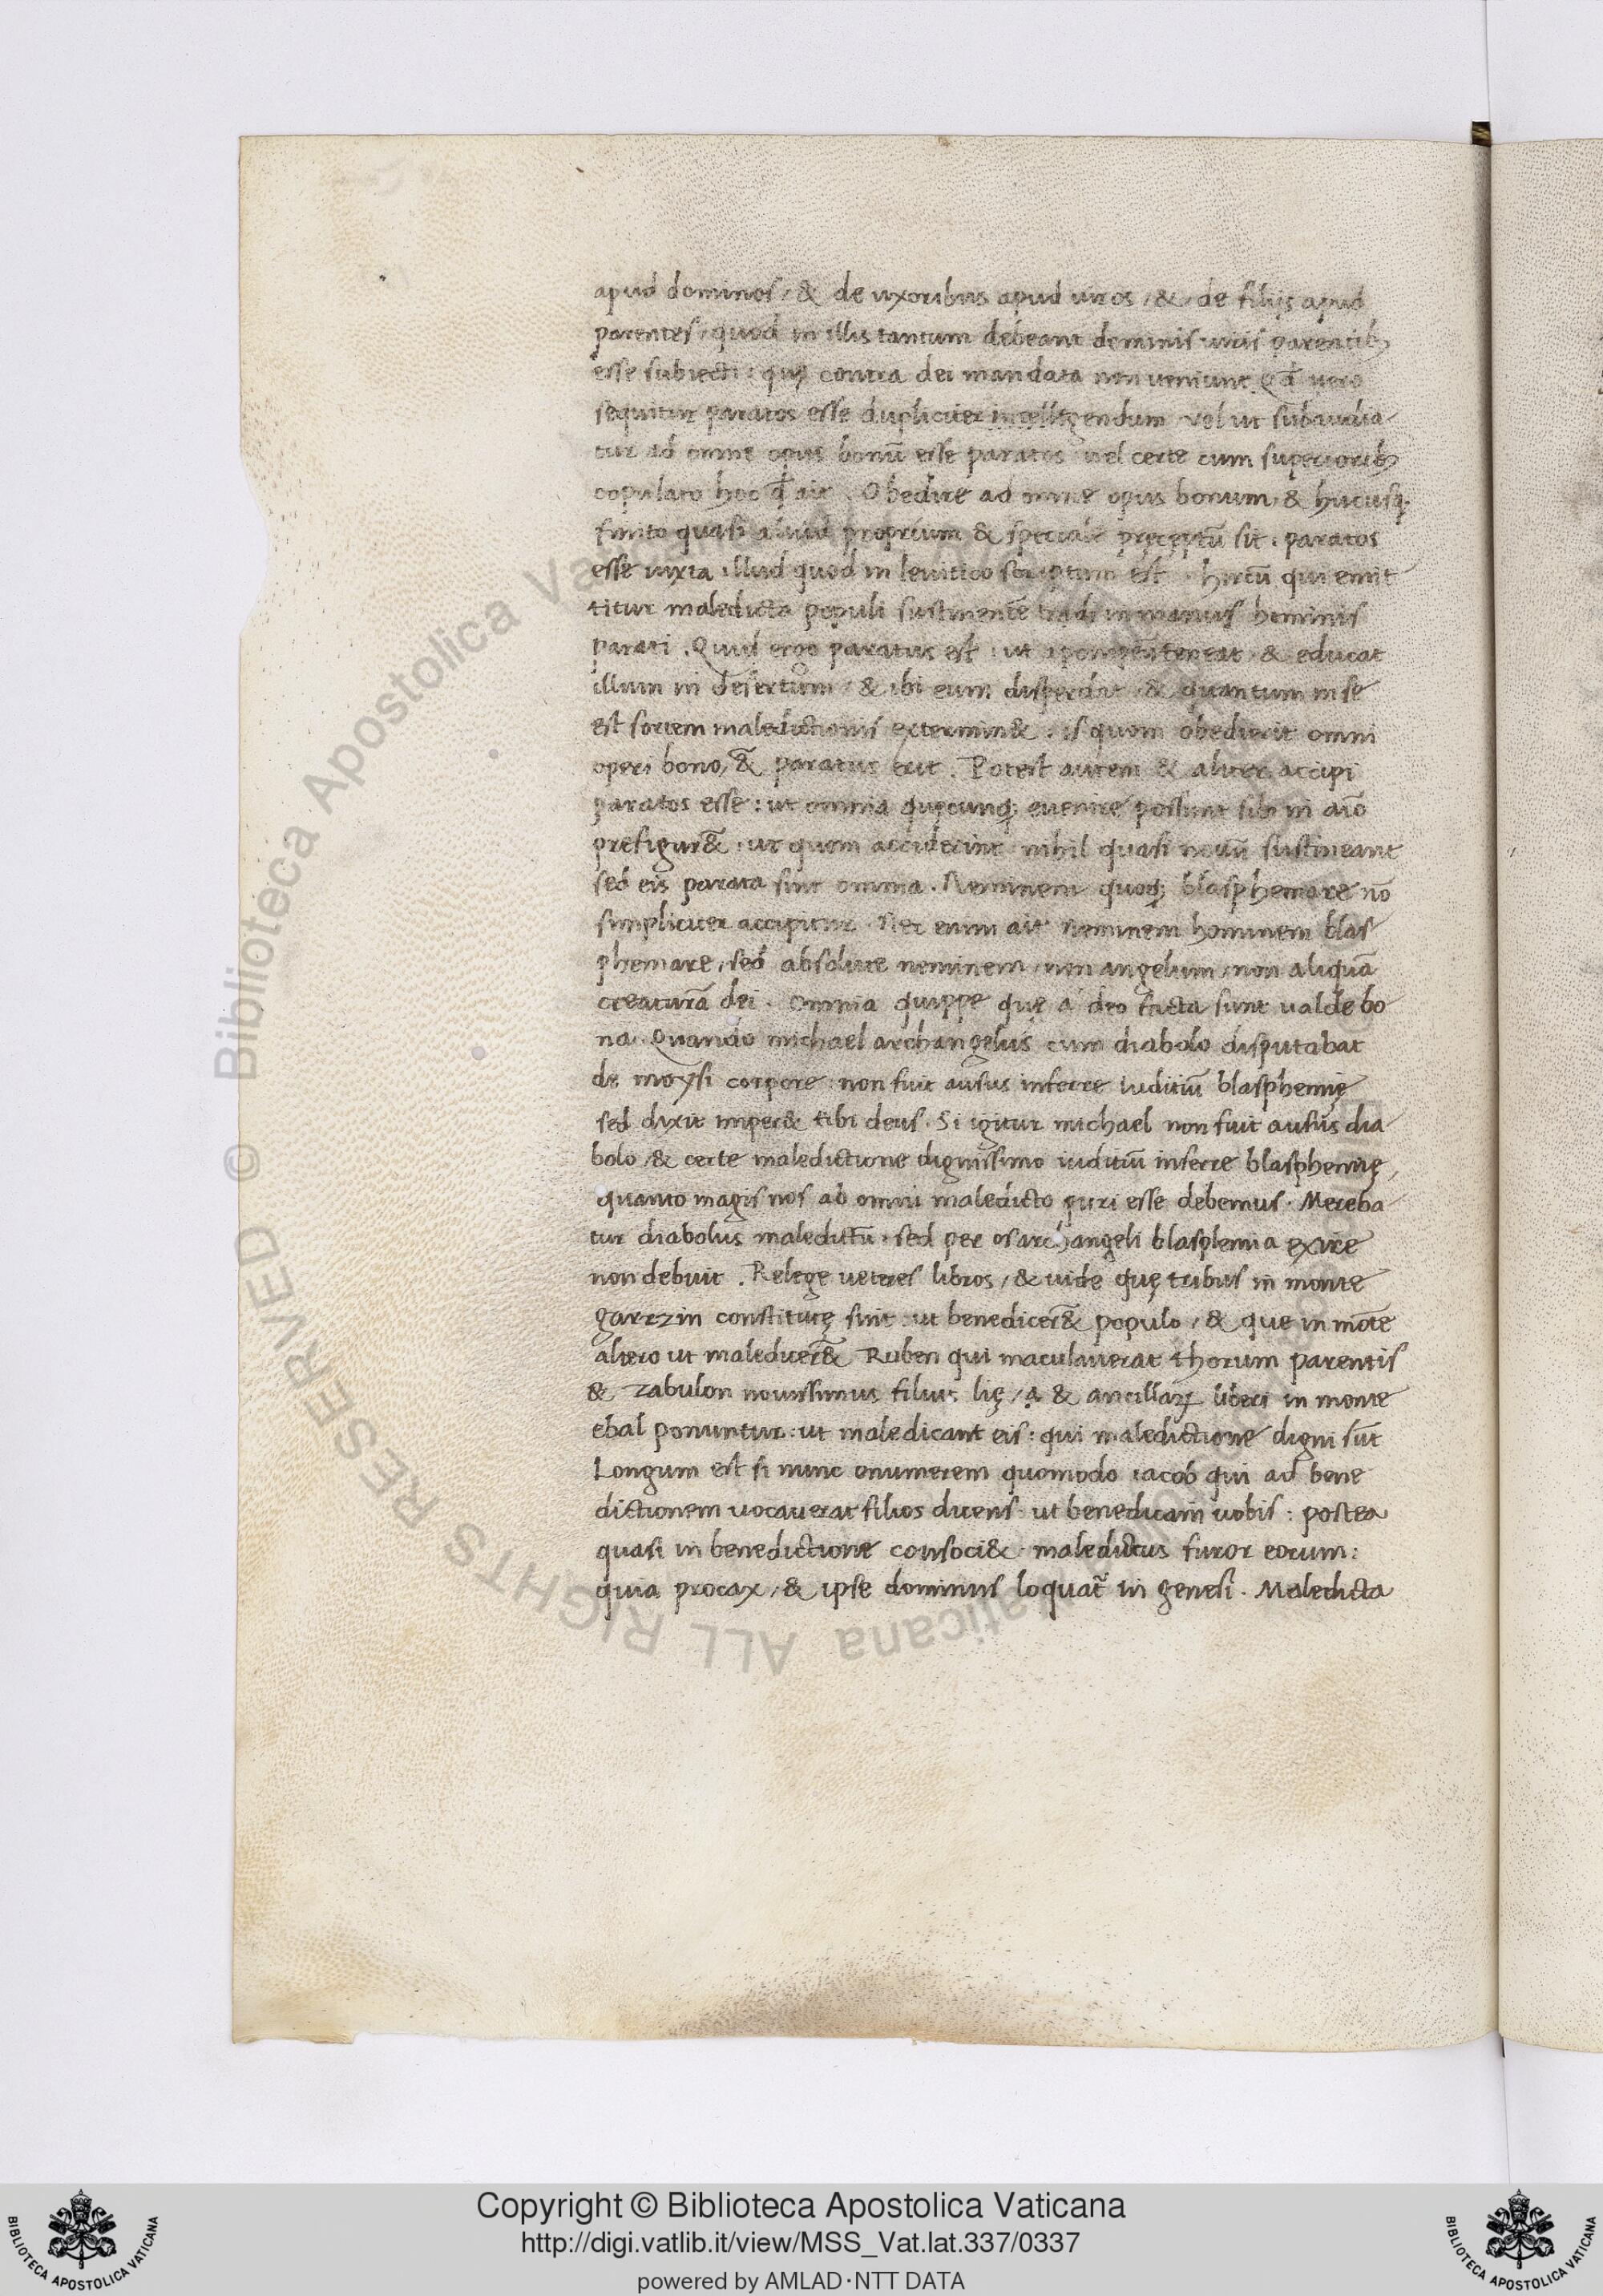 apud dominos / & de uxoribus apud uiros / & / de filijs apud
parentes / quod in illis tantum debeant dominis uiris parentib;
esse subiecti : quę contra dei mandata non ueniunt Qd̄ uero
sequitur paratos esse dupliciter intelligendum vel ut subaudia
tur ad omne opus bonū esse paratos uel certe cum superiorib;
copulato hoc qd̄ ait . Obedire ad omne opus bonum & hucusq;
finito quasi aliud proprium & speciale pręceptū sit . paratos
esse iuxta illud quod in leuitico scriptum est . hircū qui emit
titur maledicta populi sustinentē tradi in manus hominis
parati . Quid ergo paratus est : ut apompeū teneat & educat
illum in desertum / & ibi eum disperdat & quantum in se
est sortem maledictionis extermin& . is quom obedierit omni
operi bono / & paratus erit . Potest autem & aliter accipi
paratos esse : ut omnia quęcunq; euenire possunt sibi in aīo
prefigur& : ut quom acciderint nihil quasi nouū sustineant
sed eis parata sint omnia . Neminem quoq; blasphemare nō
simpliciter accipitur . Nec enim ait neminem hominem blas
phemare / sed absolute neminem / non angelum / non aliquā
creaturā dei . Omnia quippe quę a deo facta sunt ualde bo
na . Quando michael archangelus cum diabolo disputabat
de moysi corpore : non fuit ausus inferre iuditiū blasphemię
sed dixit imper& tibi deus . Si igitur michael non fuit ausus dia
bolo / & certe maledictione dignissimo iuditiū inferre blasphemię,
quanto magis nos ab omni maledicto puri esse debemus . Mereba
tur diabolus maledictū . sed per os archangeli blasplemia exire
non debuit . Relege ueteres libros / & uide quę tribus in monte
garezin constitutę sint : ut benedicer& populo / & que in mōte
altero ut maledicer& Ruben qui maculauerat thorum parentis
& zabulon nouissimus filius lię / & ancillaꝝ liberi in monte
ebal ponuntur : ut maledicant eis : qui maledictione digni sūt
Longum est si nunc enumerem quomodo iacob qui ad bene
dictionem uocauerat filios dicens ut benedicam uobis : postea
quasi in benedictione consoci& maledictus furor eorum :
quia procax / & ipse dominus loquat̄ in genesi . Maledicta
Copyright © Biblioteca Apostolica Vaticana
http://digi.vatlib.it/view/MSS_Vat.lat.337/0337
powered by AMLAD·NTT DATA
BIBLIOTECA APOSTOLICA VATICANA
BIBLIOTECA APOSTOLICA VATICANA
© Biblioteca Apostolica Vaticana ALL RIGHTS RESERVED